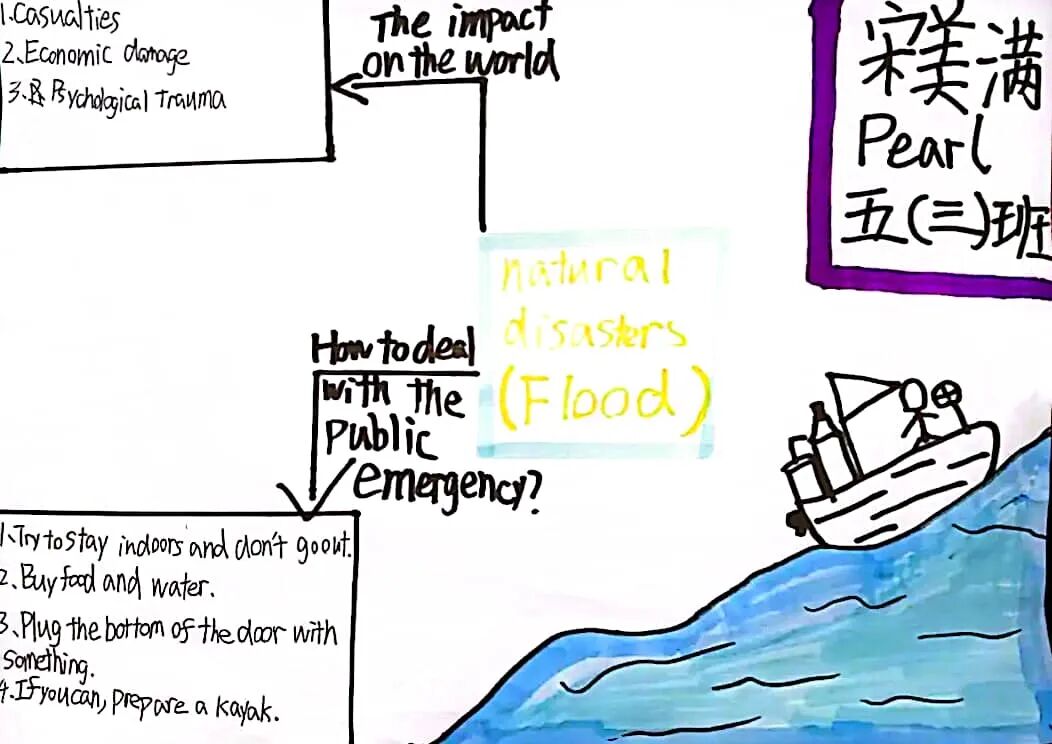 1.Casualties
2.Economic damage
3. Psychological Trauma
The impact
on the world
宋美满
Pearl
五(三)班
natural
disasters
(Flood)
How to deal
with the
Public
emergency?
1.Try to stay indoors and don't go out.
2.Buy food and water.
3.Plug the bottom of the door with
something.
4.If you can, prepare a kayak.